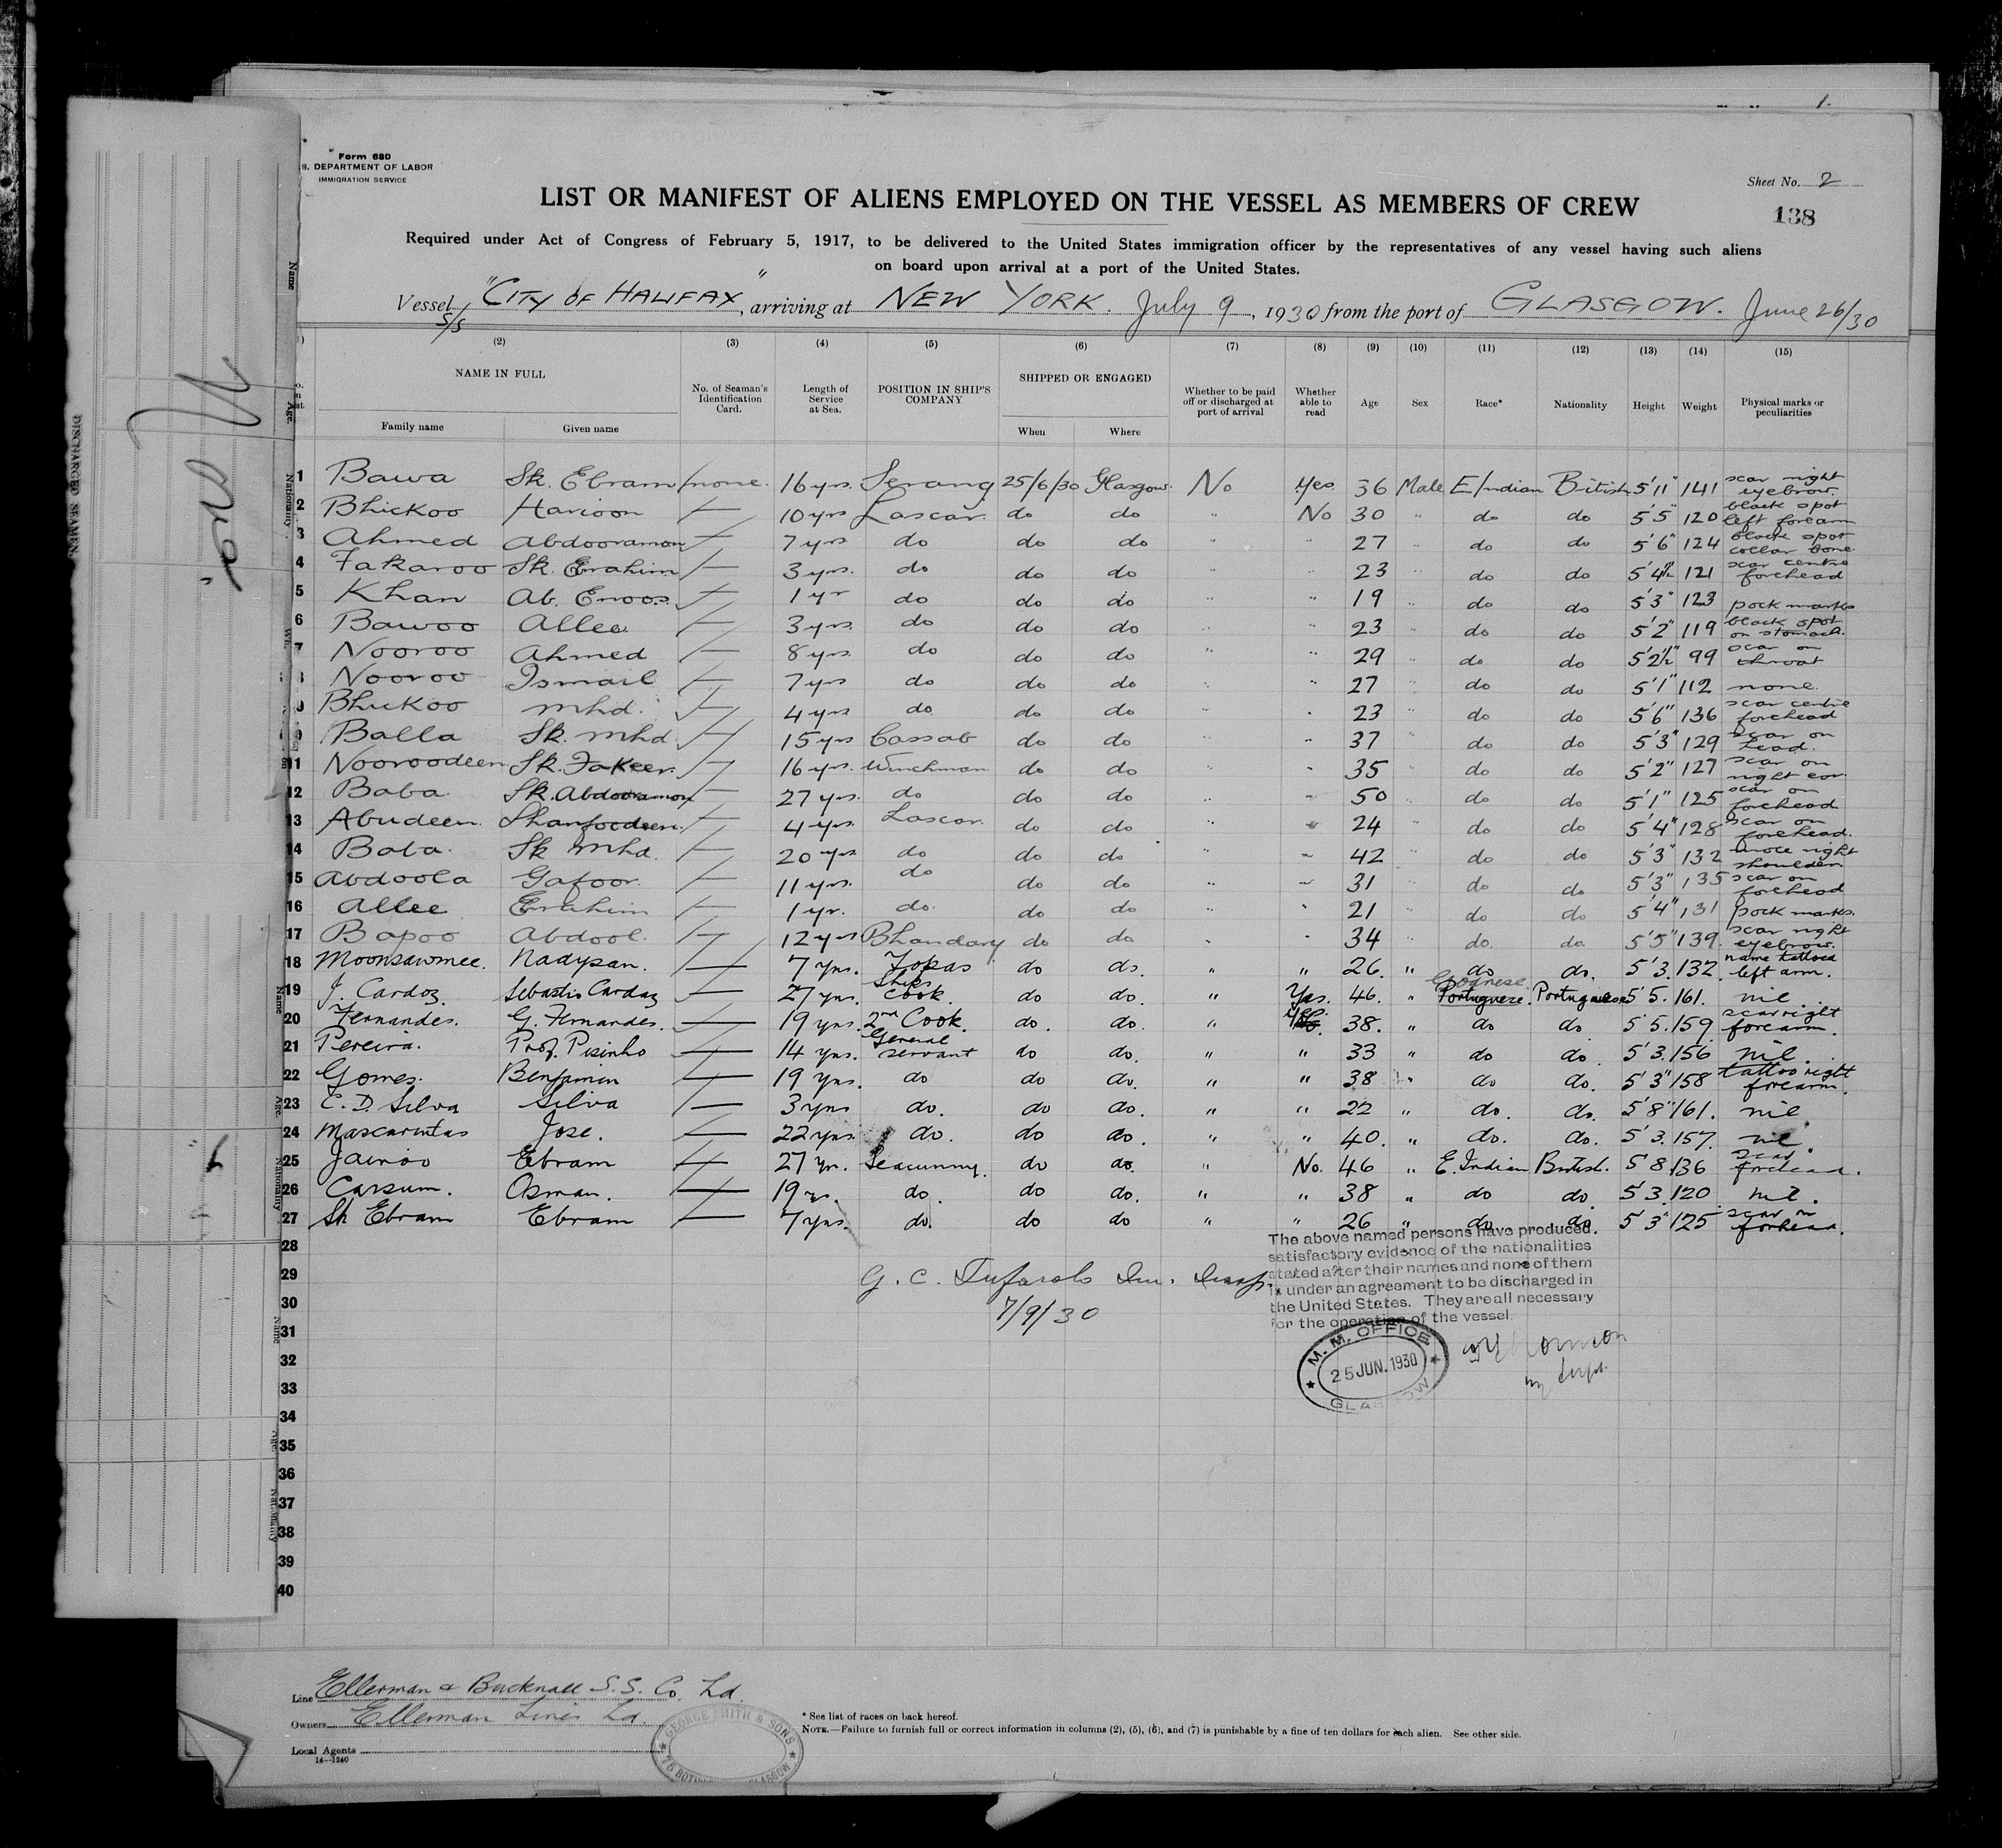 1.
Form 680
S. DEPARTMENT OF LABOR
IMMIGRATION SERVICE
Sheet No. 2
LIST OR MANIFEST OF ALIENS EMPLOYED ON THE VESSEL AS MEMBERS OF CREW
138
Required under Act of Congress of February 5, 1917, to be delivered to the United States immigration officer by the representatives of any vessel having such aliens
on board upon arrival at a port of the United States.
Vessel S/S "CITY OF HALIFAX", arriving at NEW YORK. July 9, 1930 from the port of GLASGOW. June 26/30
(2) (3) (4) (5) (6) (7) (8) (9) (10) (11) (12) (13) (14) (15)
NAME IN FULL No. of Seaman's Identification Card. Length of Service at Sea. POSITION IN SHIP'S COMPANY SHIPPED OR ENGAGED Whether to be paid off or discharged at port of arrival Whether able to read Age Sex Race* Nationality Height Weight Physical marks or peculiarities
Family name Given name When Where
1 Bawa Sk. Ebram none. 16 yrs. Serang 25/6/30 Glasgow. No Yes 36 Male E/Indian British 5'11" 141 scar right eyebrow.
2 Bhickoo Haroon — 10 yrs Lascar. do do " No 30 " do do 5'5" 120 black spot left forearm
3 Ahmed Abdooramon — 7 yrs do do do " " 27 " do do 5'6" 124 black spot collar bone
4 Fakaroo Sk. Erahim — 3 yrs. do do do " " 23 " do do 5'4½" 121 scar centre forehead
5 Khan Ab. Enoos. — 1 yr do do do " " 19 " do do 5'3" 123 pock marks
6 Bawoo Allee. — 3 yrs. do do do " " 23 " do do 5'2" 119 black spot on stomach.
7 Nooroo Ahmed — 8 yrs. do do do " " 29 " do do 5'2½" 99 scar on throat
8 Nooroo Ismail — 7 yrs do do do " " 27 " do do 5'1" 112 none.
9 Bhickoo mhd. — 4 yrs do do do " " 23 " do do 5'6" 136 scar centre forehead
10 Balla Sk. mhd. — 15 yrs Cassab do do " " 37 " do do 5'3" 129 scar on head.
11 Nooroodeen Sk. Fakeer. — 16 yrs. Winchman. do do " " 35 " do do 5'2" 127 scar on right ear.
12 Baba Sk. Abdooramon — 27 yrs. do do do " " 50 " do do 5'1" 125 scar on forehead
13 Abudeen. Sharfoodeen. — 4 yrs. Lascar. do do " " 24 " do do 5'4" 128 scar on forehead.
14 Baba. Sk mhd. — 20 yrs do do do " " 42 " do do 5'3" 132 mole right shoulder
15 Abdoola Gafoor. — 11 yrs. do do do " " 31 " do do 5'3" 135 scar on forehead
16 Allee Erahim — 1 yr. do. do do " " 21 " do do 5'4" 131 pock marks.
17 Bapoo Abdool. — 12 yrs Bhandary do do " " 34 " do. do 5'5" 139. scar right eyebrow.
18 Moonsawmee. Nadysan. — 7 yrs. Topas do do. " " 26. " do do. 5'3. 132. name tattoed left arm.
19 J. Cardoz. Sebastio Cardoz — 27 yrs. Ships Cook. do do. " Yes. 46. " Goanese Portuguese. Portuguese 5'5. 161. nil.
20 Fernandes. G. Fernandes. — 19 yrs. 2nd Cook. do. do. " Yes. 38. " do do 5'5. 159. scar right forearm.
21 Pereira. Prof. Pisinho — 14 yrs. General servant do do. " " 33 " do do. 5'3. 156 nil.
22 Gomes. Benjamin — 19 yrs. do do do. " " 38 " do do. 5'3" 158 tattoo right forearm.
23 C. D. Silva Silva — 3 yrs do. do do. " " 22 " do. do. 5'8" 161. nil
24 Mascarintas Jose. — 22 yrs. do. do do. " " 40. " do. do. 5'3. 157. nil.
25 Jainoo Ebram — 27 yr. Seacunny. do do. " No. 46 " E. Indian British. 5'8. 136 scar forehead.
26 Carsum. Osman. — 19 yr. do. do do. " " 38 " do do 5'3. 120 nil.
27 Sk Ebram Ebram — 7 yrs. do. do do " " 26 " do do. 5'3" 125 scar on forhead.
28
29
30
31
32
33
34
35
36
37
38
39
40
The above named persons have produced
satisfactory evidence of the nationalities
stated after their names and none of them
is under an agreement to be discharged in
the United States. They are all necessary
for the operation of the vessel.
G. C.
7/9/30
M. M. OFFICE
25 JUN. 1930
GLASGOW
Line Ellerman & Bucknall S.S. Co. Ld.
Owners Ellerman Lines Ld.
Local Agents
14—1240
GEORGE SMITH & SONS
75 BOTH GLASGOW
* See list of races on back hereof.
NOTE.—Failure to furnish full or correct information in columns (2), (5), (6), and (7) is punishable by a fine of ten dollars for each alien. See other side.
DISCHARGED SEAMEN
Name
Age.
Nationality
Name
Age.
Nationality
Name
Age.
Nationality